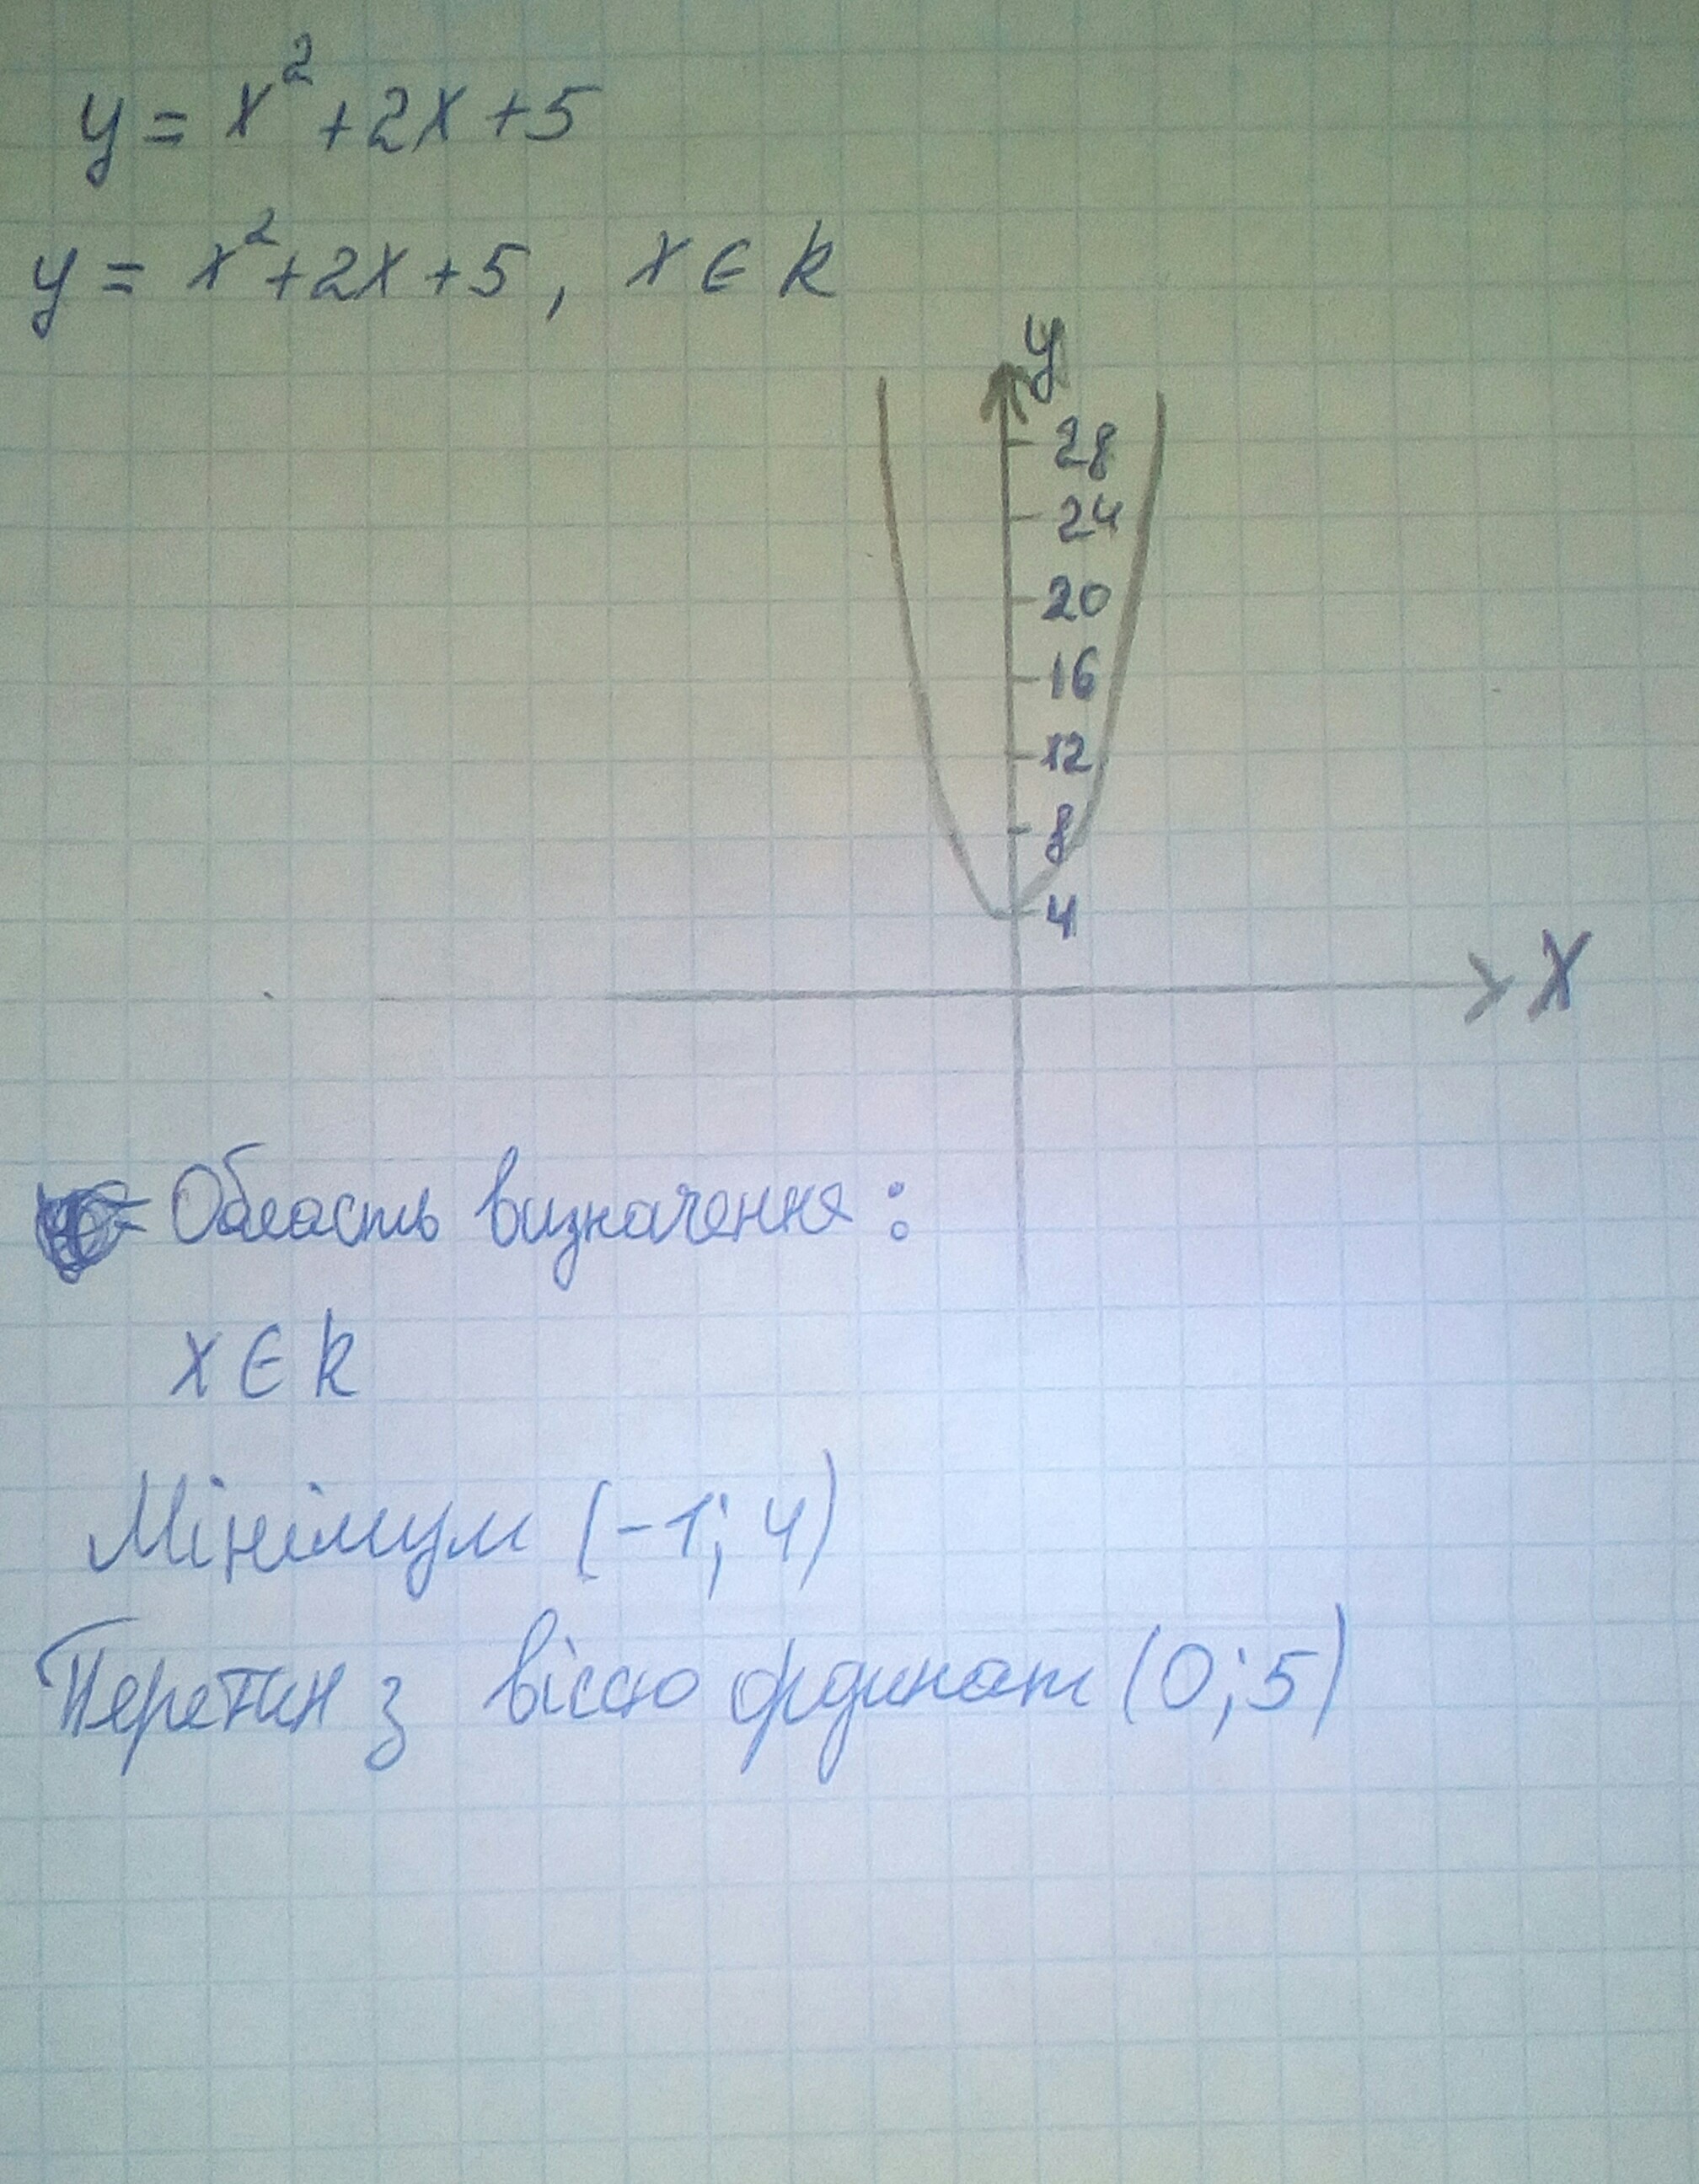 y = x² + 2x + 5
y = x² + 2x + 5, x ∈ R
y
28
24
20
16
12
8
4
X
Область визначення:
x ∈ R
Мінімум (-1; 4)
Перетин з віссю ординат (0; 5)